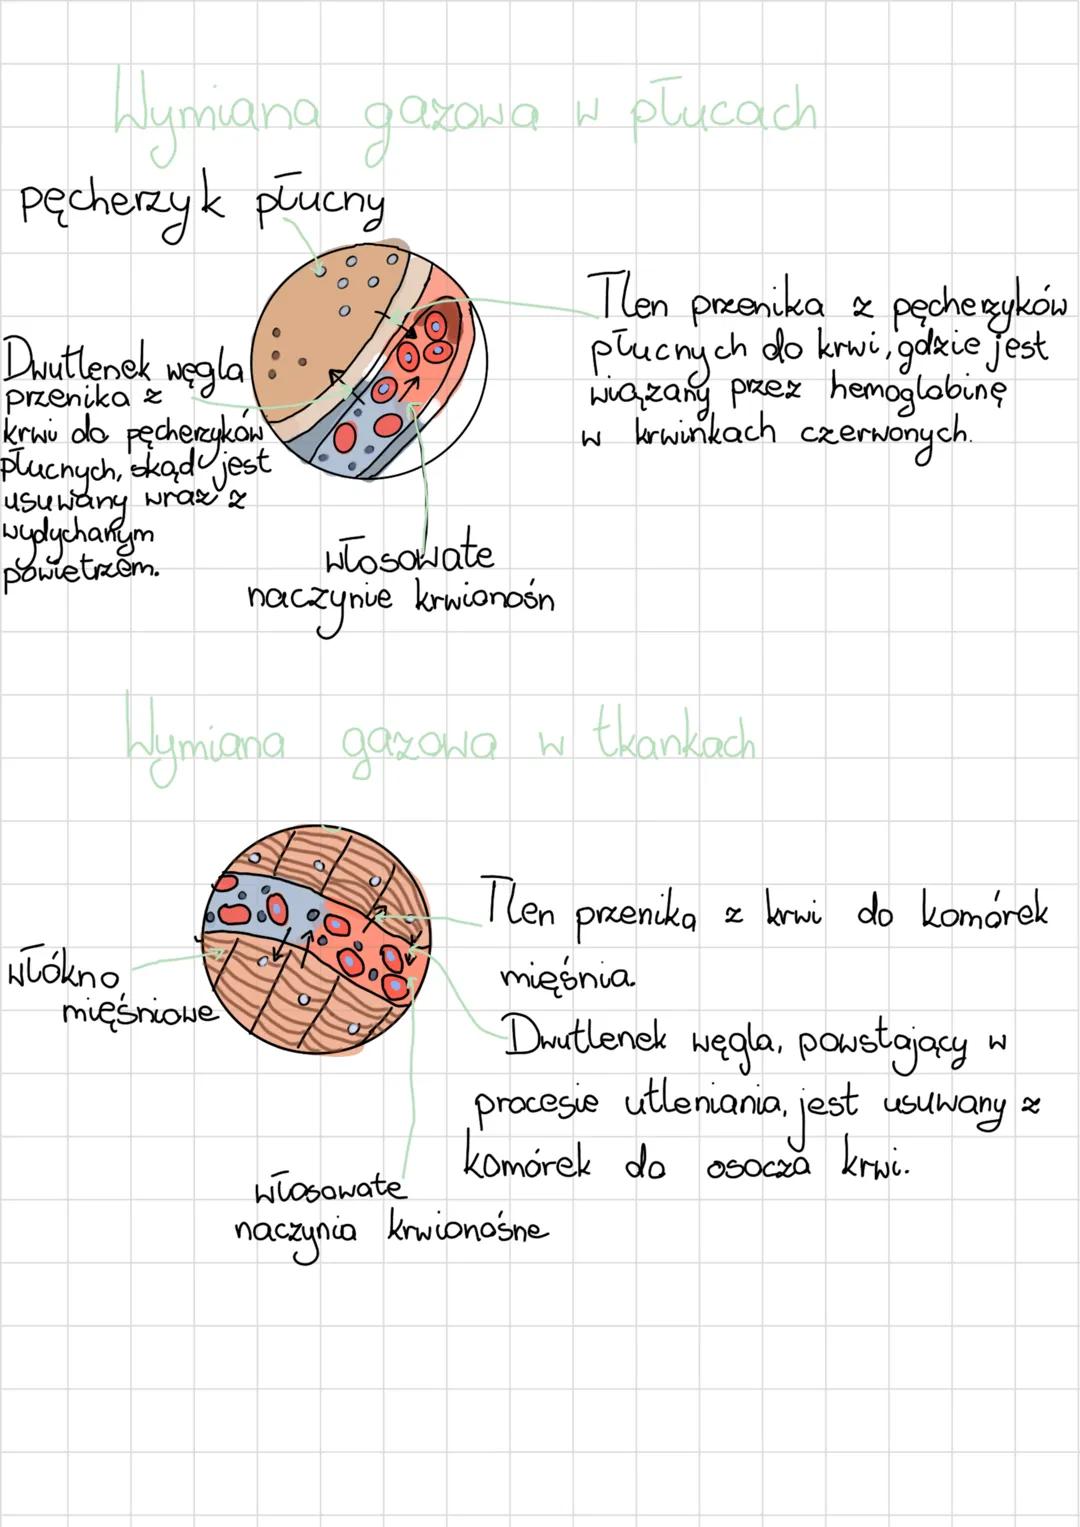 Wymiana gazowa w płucach
pęcherzyk płucny
Tlen przenika z pęcherzyków
płucnych do krwi, gdzie jest
wiązany przez hemoglobinę
w krwinkach czerwonych.
Dwutlenek węgla
przenika z
krwi do pęcherzyków
płucnych, skąd jest
usuwany wraz z
wydychanym
powietrzem.
włosowate
naczynie krwionośn
Wymiana gazowa w tkankach
Tlen przenika z krwi do komórek
mięśnia.
włókno
mięśniowe
Dwutlenek węgla, powstający w
procesie utleniania, jest usuwany z
komórek do osocza krwi.
włosowate
naczynia krwionośne